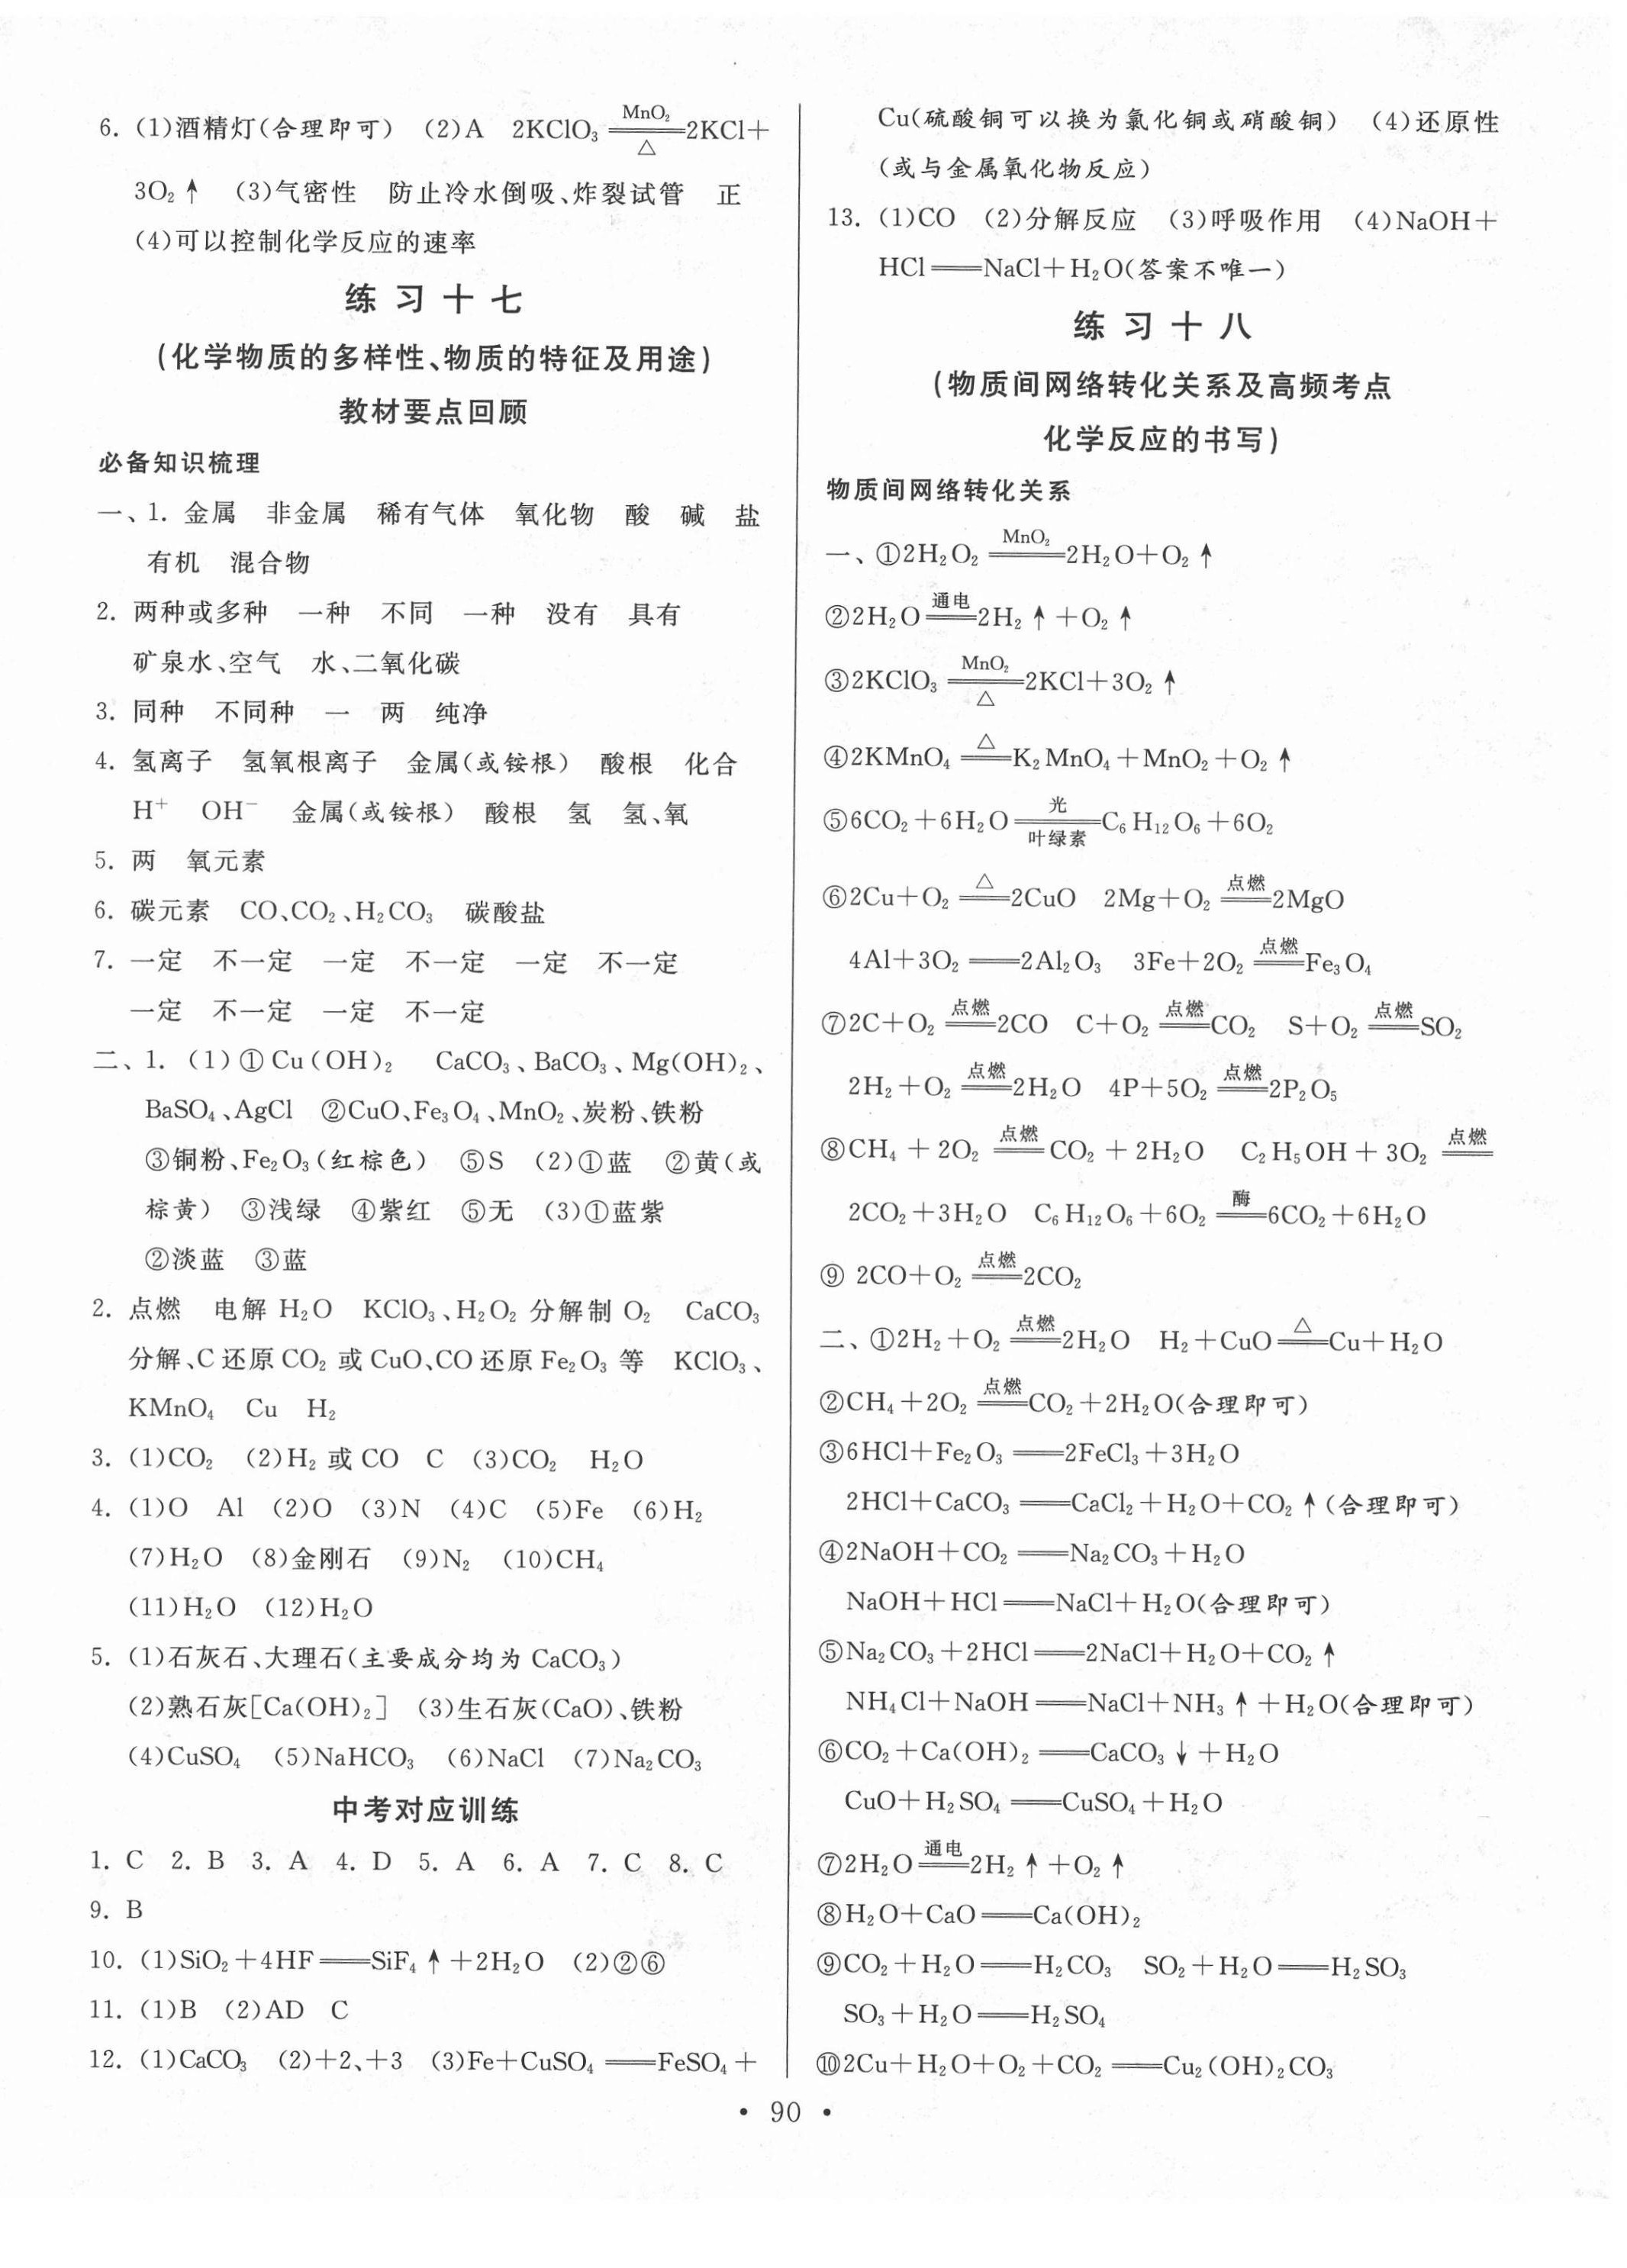 6. (1)酒精灯(合理即可) (2)A 2KClO₃ =MnO₂/△= 2KCl+
3O₂↑ (3)气密性 防止冷水倒吸、炸裂试管 正
(4)可以控制化学反应的速率
练习十七
(化学物质的多样性、物质的特征及用途)
教材要点回顾
必备知识梳理
一、1. 金属 非金属 稀有气体 氧化物 酸 碱 盐
有机 混合物
2. 两种或多种 一种 不同 一种 没有 具有
矿泉水、空气 水、二氧化碳
3. 同种 不同种 一 两 纯净
4. 氢离子 氢氧根离子 金属(或铵根) 酸根 化合
H⁺ OH⁻ 金属(或铵根) 酸根 氢 氢、氧
5. 两 氧元素
6. 碳元素 CO、CO₂、H₂CO₃ 碳酸盐
7. 一定 不一定 一定 不一定 一定 不一定
一定 不一定 一定 不一定
二、1. (1)①Cu(OH)₂ CaCO₃、BaCO₃、Mg(OH)₂、
BaSO₄、AgCl ②CuO、Fe₃O₄、MnO₂、炭粉、铁粉
③铜粉、Fe₂O₃(红棕色) ⑤S (2)①蓝 ②黄(或
棕黄) ③浅绿 ④紫红 ⑤无 (3)①蓝紫
②淡蓝 ③蓝
2. 点燃 电解 H₂O KClO₃、H₂O₂ 分解制 O₂ CaCO₃
分解、C 还原 CO₂ 或 CuO、CO 还原 Fe₂O₃ 等 KClO₃、
KMnO₄ Cu H₂
3. (1)CO₂ (2)H₂ 或 CO C (3)CO₂ H₂O
4. (1)O Al (2)O (3)N (4)C (5)Fe (6)H₂
(7)H₂O (8)金刚石 (9)N₂ (10)CH₄
(11)H₂O (12)H₂O
5. (1)石灰石、大理石(主要成分均为 CaCO₃)
(2)熟石灰[Ca(OH)₂] (3)生石灰(CaO)、铁粉
(4)CuSO₄ (5)NaHCO₃ (6)NaCl (7)Na₂CO₃
中考对应训练
1. C 2. B 3. A 4. D 5. A 6. A 7. C 8. C
9. B
10. (1)SiO₂+4HF══SiF₄↑+2H₂O (2)②⑥
11. (1)B (2)AD C
12. (1)CaCO₃ (2)+2、+3 (3)Fe+CuSO₄══FeSO₄+
Cu(硫酸铜可以换为氯化铜或硝酸铜) (4)还原性
(或与金属氧化物反应)
13. (1)CO (2)分解反应 (3)呼吸作用 (4)NaOH+
HCl══NaCl+H₂O(答案不唯一)
练习十八
(物质间网络转化关系及高频考点
化学反应的书写)
物质间网络转化关系
一、①2H₂O₂ =MnO₂= 2H₂O+O₂↑
②2H₂O =通电= 2H₂↑+O₂↑
③2KClO₃ =MnO₂/△= 2KCl+3O₂↑
④2KMnO₄ =△= K₂MnO₄+MnO₂+O₂↑
⑤6CO₂+6H₂O =光/叶绿素= C₆H₁₂O₆+6O₂
⑥2Cu+O₂ =△= 2CuO 2Mg+O₂ =点燃= 2MgO
4Al+3O₂══2Al₂O₃ 3Fe+2O₂ =点燃= Fe₃O₄
⑦2C+O₂ =点燃= 2CO C+O₂ =点燃= CO₂ S+O₂ =点燃= SO₂
2H₂+O₂ =点燃= 2H₂O 4P+5O₂ =点燃= 2P₂O₅
⑧CH₄+2O₂ =点燃= CO₂+2H₂O C₂H₅OH+3O₂ =点燃=
2CO₂+3H₂O C₆H₁₂O₆+6O₂ =酶= 6CO₂+6H₂O
⑨ 2CO+O₂ =点燃= 2CO₂
二、①2H₂+O₂ =点燃= 2H₂O H₂+CuO =△= Cu+H₂O
②CH₄+2O₂ =点燃= CO₂+2H₂O(合理即可)
③6HCl+Fe₂O₃══2FeCl₃+3H₂O
2HCl+CaCO₃══CaCl₂+H₂O+CO₂↑(合理即可)
④2NaOH+CO₂══Na₂CO₃+H₂O
NaOH+HCl══NaCl+H₂O(合理即可)
⑤Na₂CO₃+2HCl══2NaCl+H₂O+CO₂↑
NH₄Cl+NaOH══NaCl+NH₃↑+H₂O(合理即可)
⑥CO₂+Ca(OH)₂══CaCO₃↓+H₂O
CuO+H₂SO₄══CuSO₄+H₂O
⑦2H₂O =通电= 2H₂↑+O₂↑
⑧H₂O+CaO══Ca(OH)₂
⑨CO₂+H₂O══H₂CO₃ SO₂+H₂O══H₂SO₃
SO₃+H₂O══H₂SO₄
⑩2Cu+H₂O+O₂+CO₂══Cu₂(OH)₂CO₃
• 90 •